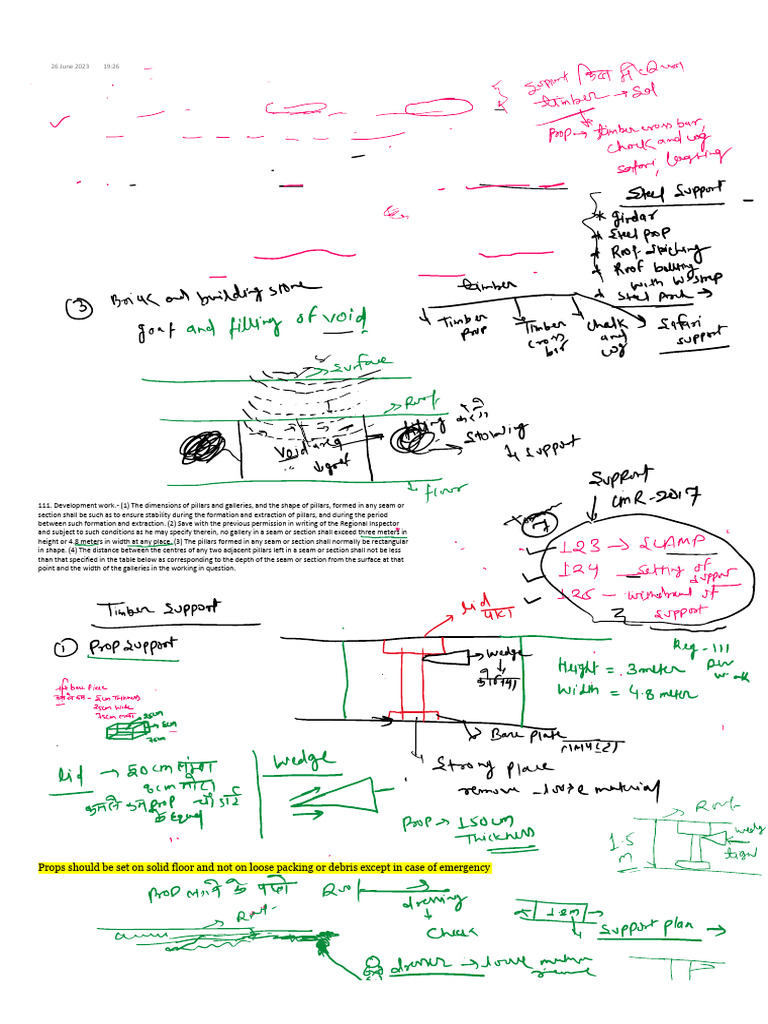 26 June 2023 19:26
support किस में
timber → Sol
Prop → timber cross bar,
chock and cog
safari, lagging
Steel Support
* girdar
* Steel prop
* Roof stiching
* Roof bolting
with W strap
* Steel
timber
Timber prop
Timber cross bar
chalk and cog
Safari support
③ Brick and building stone
goaf and filling of void
Surface
Roof
void area
↓ goaf
filling
Stowing
↓ support
floor
111. Development work.- (1) The dimensions of pillars and galleries, and the shape of pillars, formed in any seam or
section shall be such as to ensure stability during the formation and extraction of pillars, and during the period
between such formation and extraction. (2) Save with the previous permission in writing of the Regional Inspector
and subject to such conditions as he may specify therein, no gallery in a seam or section shall exceed three meters in
height or 4.8 meters in width at any place. (3) The pillars formed in any seam or section shall normally be rectangular
in shape. (4) The distance between the centres of any two adjacent pillars left in a seam or section shall not be less
than that specified in the table below as corresponding to the depth of the seam or section from the surface at that
point and the width of the galleries in the working in question.
Support
CMR-2017
7
123 → SCAMP
124 setting of support
125 - withdrawal of support
Timber Support
① Prop Support
lid
wedge
Height = 3 meter
Width = 4.8 meter
Reg - 111
Base plate
Strong place
remove loose material
base piece
5cm Thickness
25cm wide
75cm
25cm
5cm
75cm
lid → 50cm लंबा
8cm मोटा
कम से कम prop की चौड़ाई
के equal
Wedge
Prop → 150cm
Thickness
Roof
wedge
1.5
m
Props should be set on solid floor and not on loose packing or debris except in case of emergency
Prop लगाने के पहले
Roof
dressing
↓
check
1.2m
Support plan →
Roof
dresser → loose